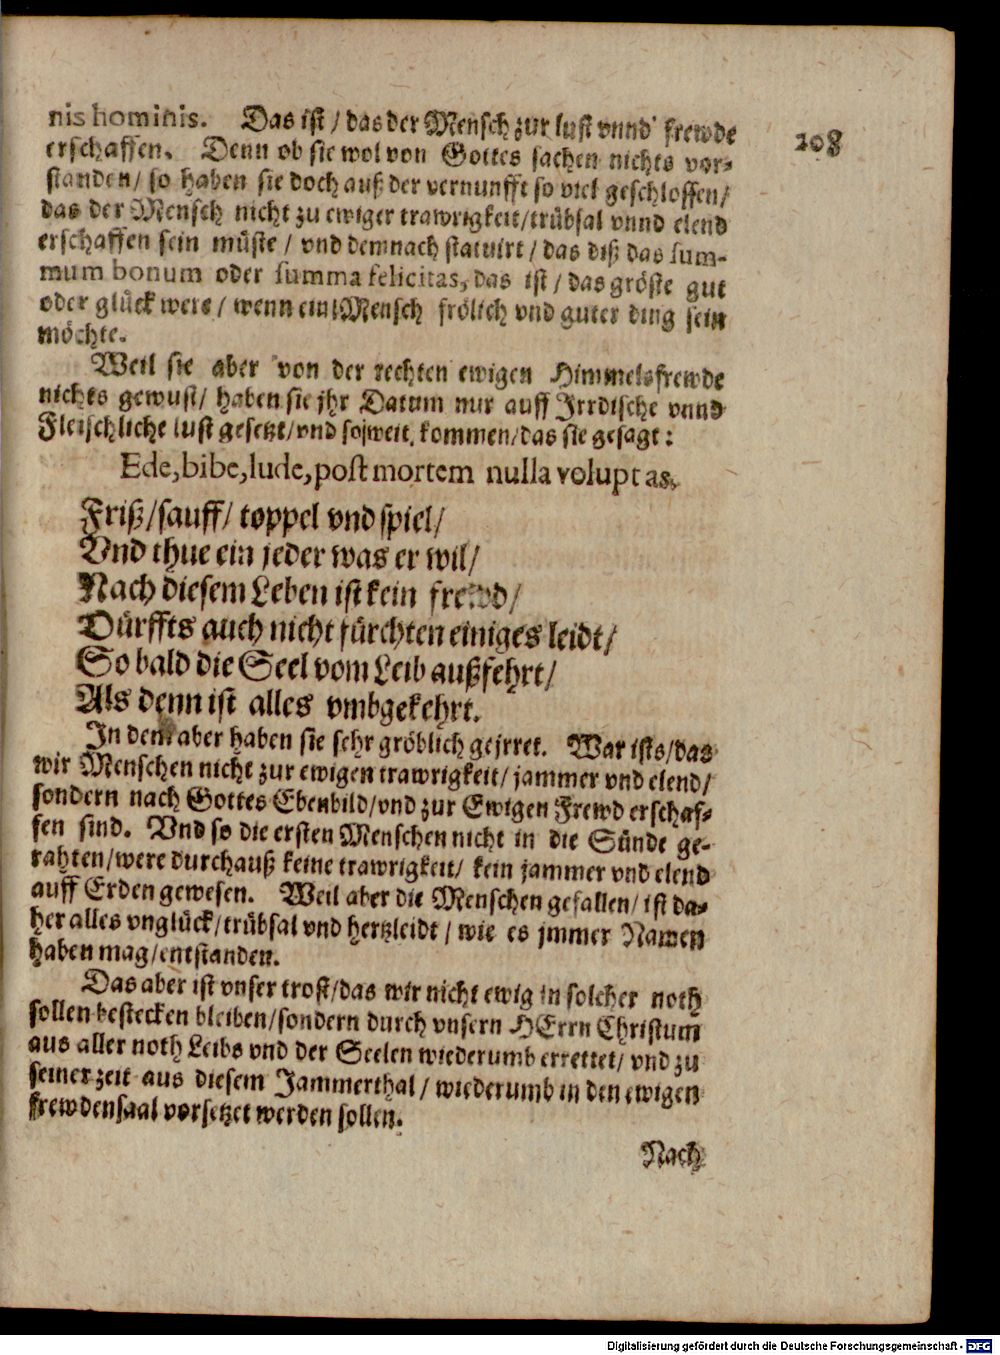 nis hominis. Das ist / das der Mensch zur lust vnnd frewde
208
erschaffen. Denn ob sie wol von Gottes sachen nichts vor-
standen / so haben sie doch auß der vernunfft so viel geschlossen /
das der Mensch nicht zu ewiger trawrigkeit / trübsal vnnd elend
erschaffen sein müste / vnd demnach statuirt / das diß das sum-
mum bonum oder summa felicitas, das ist / das gröste gut
oder glück were / wenn ein Mensch frölich vnd guter ding sein
möchte.
Weil sie aber von der rechten ewigen Himmelsfrewde
nichts gewust / haben sie jhr Datum nur auff Irrdische vnnd
Fleischliche lust gesetzt / vnd so weit kommen / das sie gesagt:
Ede, bibe, lude, post mortem nulla voluptas,
Friß / sauff / toppel vnd spiel /
Vnd thue ein jeder was er wil /
Nach diesem Leben ist kein frewd /
Dürffts auch nicht fürchten einiges leidt /
So bald die Seel vom Leib außfehrt /
Als denn ist alles vmbgekehrt.
In dem aber haben sie sehr gröblich gejrret. War ists / das
wir Menschen nicht zur ewigen trawrigkeit / jammer vnd elend /
sondern nach Gottes Ebenbild / vnd zur Ewigen Frewd erschaf-
fen sind. Vnd so die ersten Menschen nicht in die Sünde ge-
rahten / were durchauß keine trawrigkeit / kein jammer vnd elend
auff Erden gewesen. Weil aber die Menschen gefallen / ist da-
her alles vnglück / trübsal vnd hertzleidt / wie es jmmer Namen
haben mag / entstanden.
Das aber ist vnser trost / das wir nicht ewig in solcher noth
sollen bestecken bleiben / sondern durch vnsern HErrn Christum
aus aller noth Leibs vnd der Seelen wiederumb errettet / vnd zu
seiner zeit aus diesem Jammerthal / wiederumb in den ewigen
frewdensaal vorsetzet werden sollen.
Nach
Digitalisierung gefördert durch die Deutsche Forschungsgemeinschaft - DFG